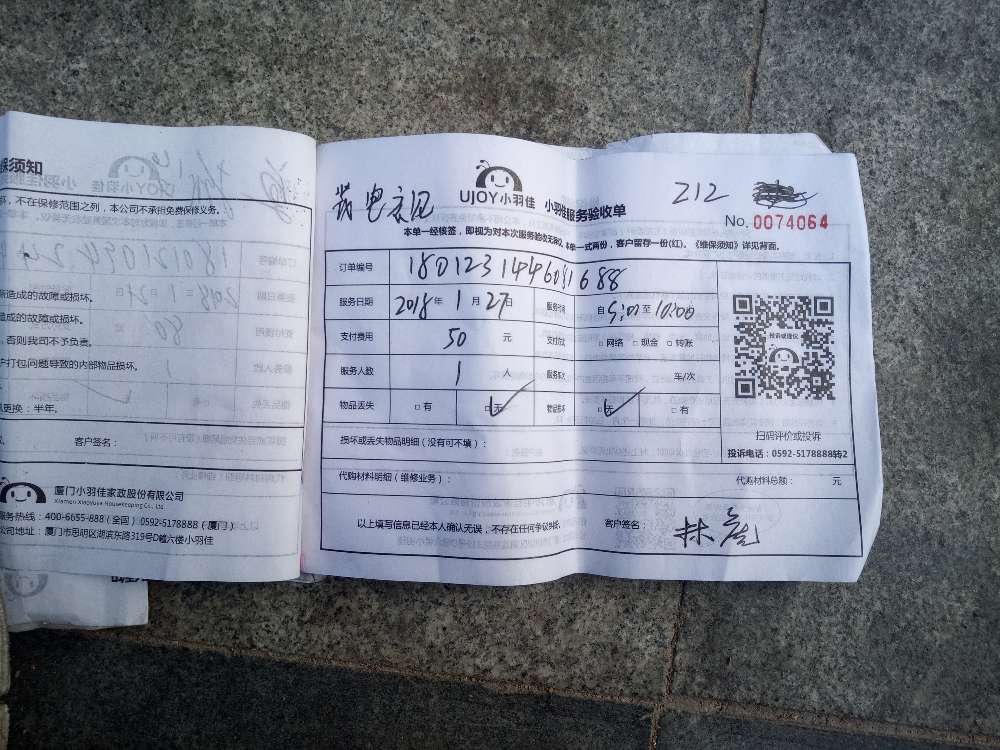 保须知
不在保修范围之列，本公司不承担免费保修义务。
造成的故障或损坏。
成的故障或损坏。
否则我司不予负责。
户打包问题导致的内部物品损坏。
更换：半年。
客户签名：
厦门小羽佳家政股份有限公司
Xiamen Xiaoyujia Housekeeping Co., Ltd.
服务热线：400-6655-888（全国）0592-5178888（厦门）
公司地址：厦门市思明区湖滨东路319号D幢六楼小羽佳
UJOY小羽佳 小羽佳服务验收单
212
No. 0074064
本单一经核签，即视为对本次服务验收无异议。本单一式两份，客户留存一份(红)。《维保须知》详见背面。
订单编号 18012314460816 88
服务日期 2018 年 1 月 27 日 服务时间 自 9:00 至 10:00
支付费用 50 元 支付方式 □ 网络 □ 现金 □ 转账
服务人数 1 人 服务车次 车/次
物品丢失 □ 有 □ 无 物品损坏 □ 无 □ 有
投诉或建议
扫码评价或投诉
投诉电话：0592-5178888转2
损坏或丢失物品明细（没有可不填）：
代购材料明细（维修业务）： 代购材料总额： 元
以上填写信息已经本人确认无误，不存在任何争议纠纷。 客户签名：